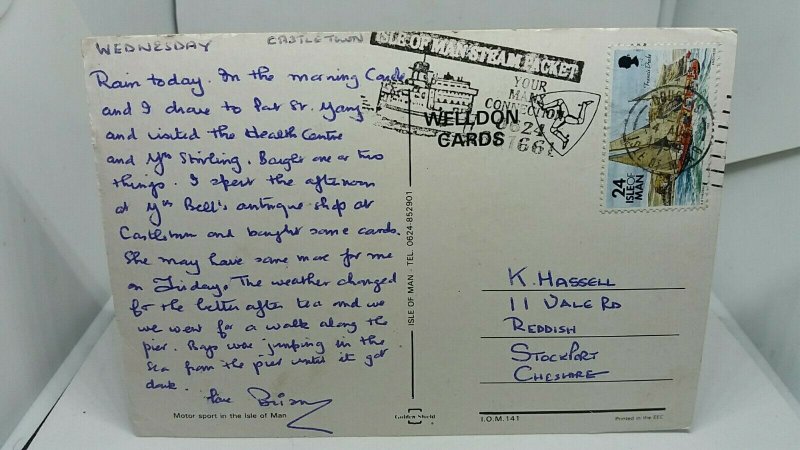 WEDNESDAY
CASTLETOWN
Rain today. In the morning Carole
and I drove to Port St. Mary
and visited the Health Centre
and Mrs Stirling. Bought one or two
things. I spent the afternoon
at Mrs Bell's antique shop at
Castletown and bought some cards.
She may have some more for me
on Friday. The weather changed
for the better after tea and we
we went for a walk along the
pier. Boys were jumping in the
sea from the pier until it got
dark.
Love Brian
Motor sport in the Isle of Man
Golden Shield
ISLE OF MAN - TEL. 0624-852901
ISLE OF MAN STEAM PACKET
YOUR
MAIN
CONNECTION
0624
661
WELLDON
CARDS
24
ISLE OF
MAN
K. HASSELL
11 VALE RD
REDDISH
STOCKPORT
CHESHIRE
I.O.M.141
Printed in the EEC